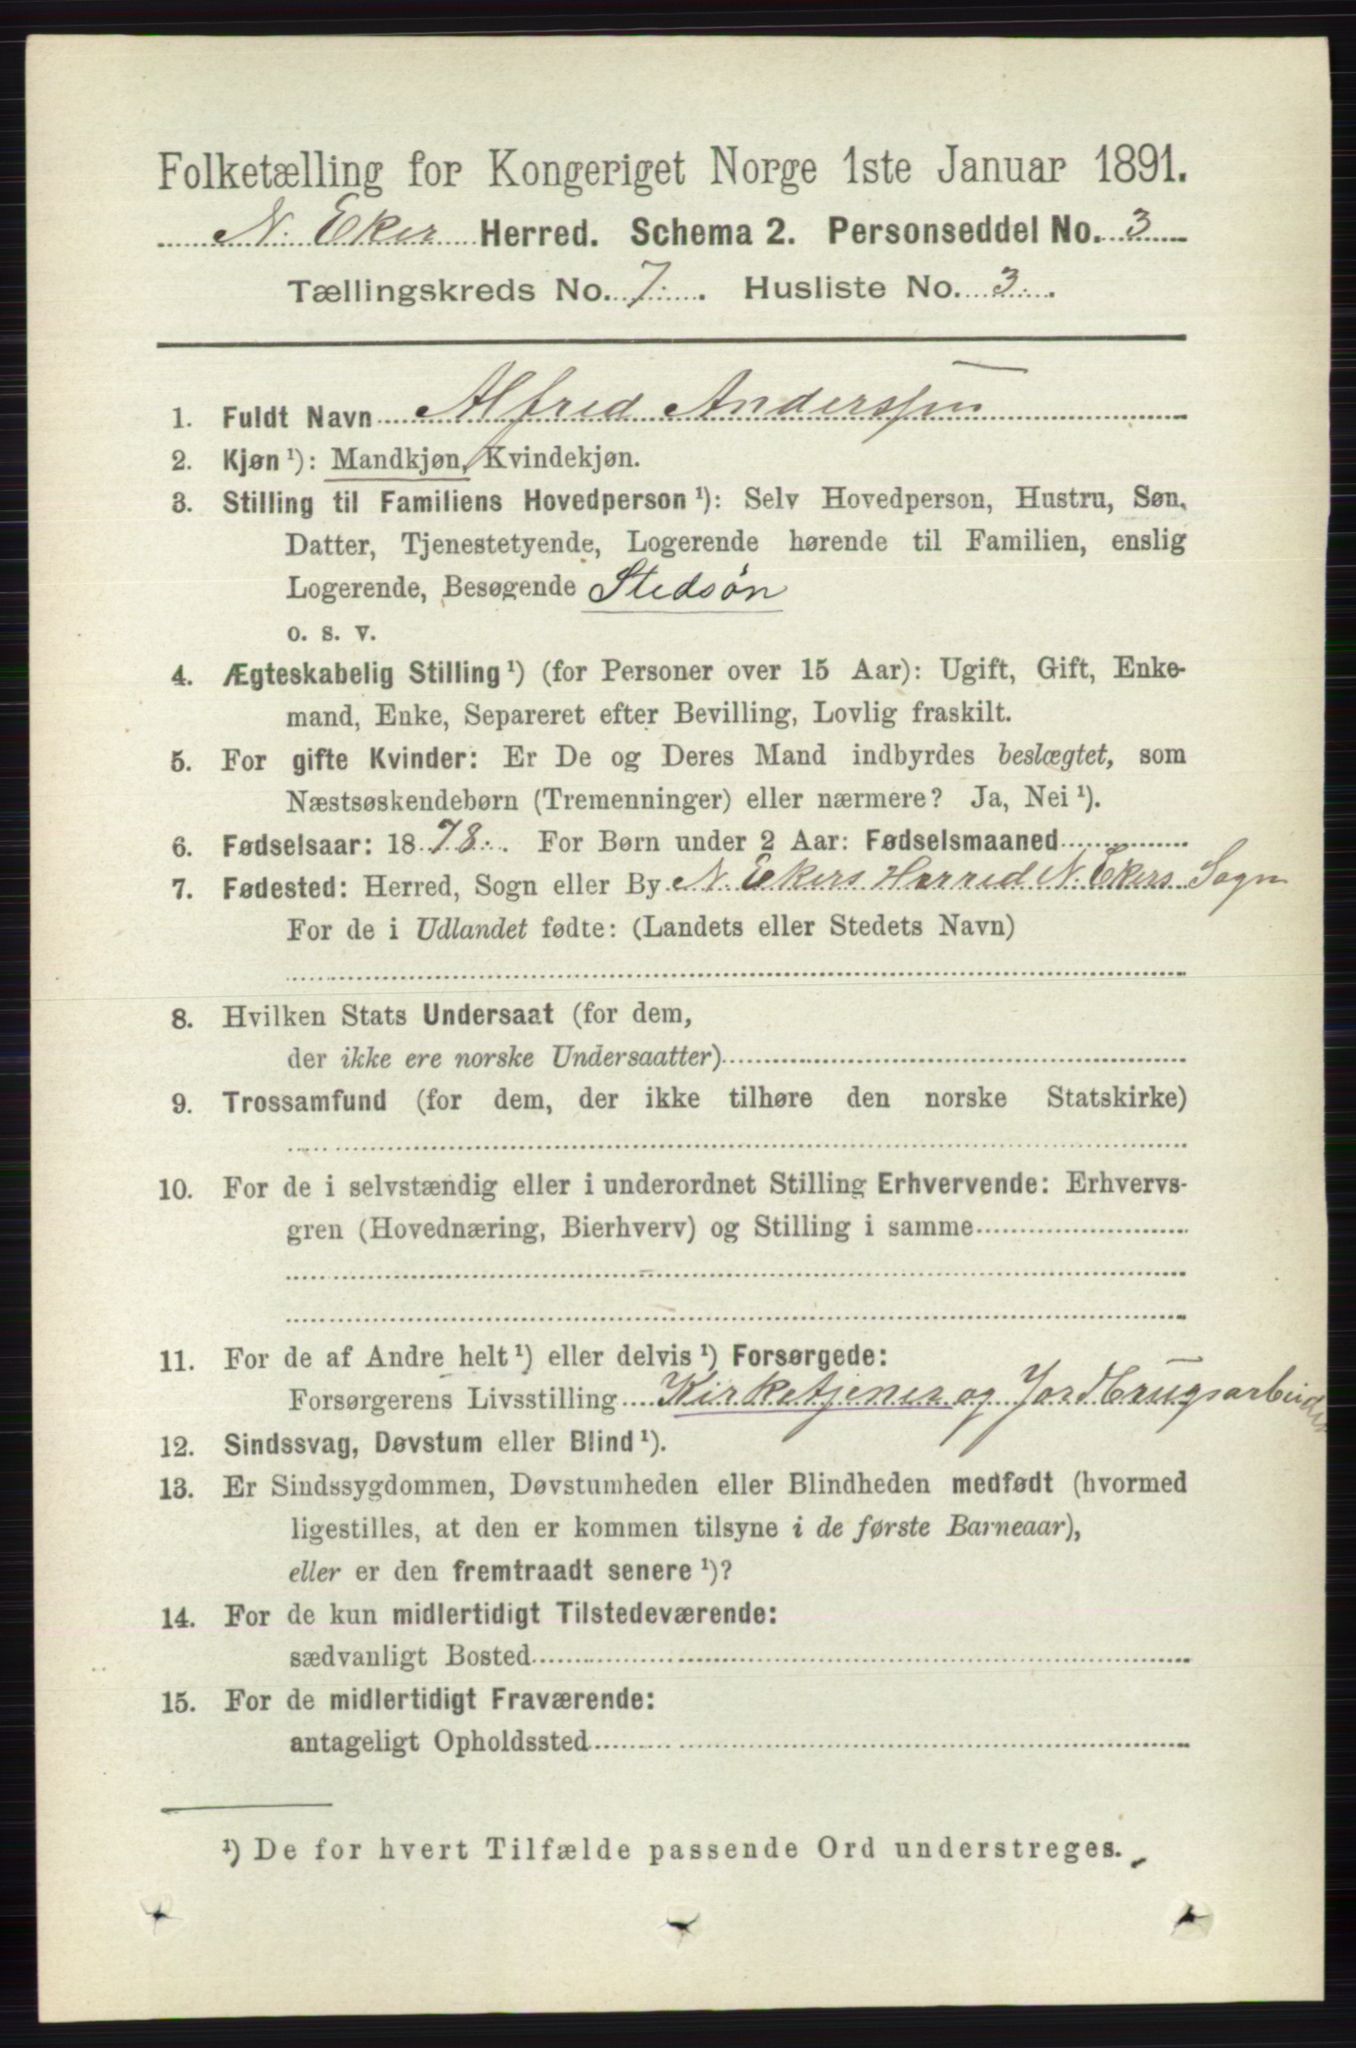 Folketælling for Kongeriget Norge 1ste Januar 1891.
N. Eker Herred. Schema 2. Personseddel No. 3
Tællingskreds No. 7. Husliste No. 3.
1. Fuldt Navn Alfred Anderssen
2. Kjøn ¹): Mandkjøn, Kvindekjøn.
3. Stilling til Familiens Hovedperson ¹): Selv Hovedperson, Hustru, Søn,
Datter, Tjenestetyende, Logerende hørende til Familien, enslig
Logerende, Besøgende Stedsøn
o. s. v.
4. Ægteskabelig Stilling ¹) (for Personer over 15 Aar): Ugift, Gift, Enke-
mand, Enke, Separeret efter Bevilling, Lovlig fraskilt.
5. For gifte Kvinder: Er De og Deres Mand indbyrdes beslægtet, som
Næstsøskendebørn (Tremenninger) eller nærmere? Ja, Nei ¹).
6. Fødselsaar: 1878. For Børn under 2 Aar: Fødselsmaaned
7. Fødested: Herred, Sogn eller By N. Ekers Herred N. Ekers Sogn
For de i Udlandet fødte: (Landets eller Stedets Navn)
8. Hvilken Stats Undersaat (for dem,
der ikke ere norske Undersaatter)
9. Trossamfund (for dem, der ikke tilhøre den norske Statskirke)
10. For de i selvstændig eller i underordnet Stilling Erhvervende: Erhvervs-
gren (Hovednæring, Bierhverv) og Stilling i samme
11. For de af Andre helt ¹) eller delvis ¹) Forsørgede:
Forsørgerens Livsstilling Kirketjener og Jordbrugsarbeider
12. Sindssvag, Døvstum eller Blind ¹).
13. Er Sindssygdommen, Døvstumheden eller Blindheden medfødt (hvormed
ligestilles, at den er kommen tilsyne i de første Barneaar),
eller er den fremtraadt senere ¹)?
14. For de kun midlertidigt Tilstedeværende:
sædvanligt Bosted
15. For de midlertidigt Fraværende:
antageligt Opholdssted
¹) De for hvert Tilfælde passende Ord understreges.